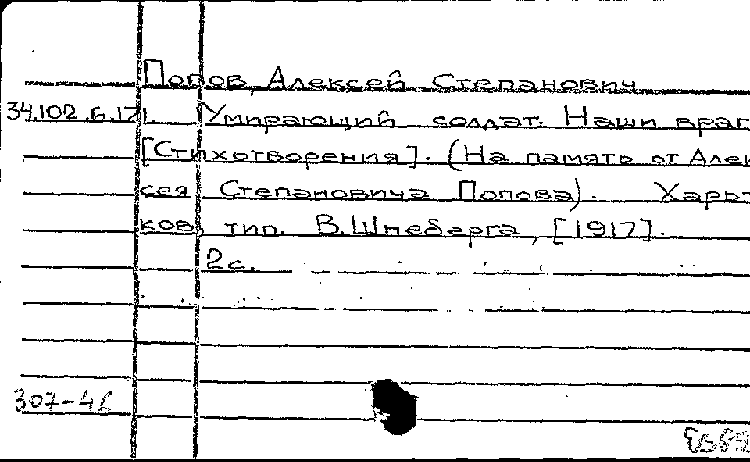 Попов, Алексей Степанович
34.102.6.171. Умирающий солдат. Наши враг
[Стихотворения]. (На память от Алек
сея Степановича Попова). Харь
ков, тип. В. Шмеберга, [1917].
2 с.
307-46